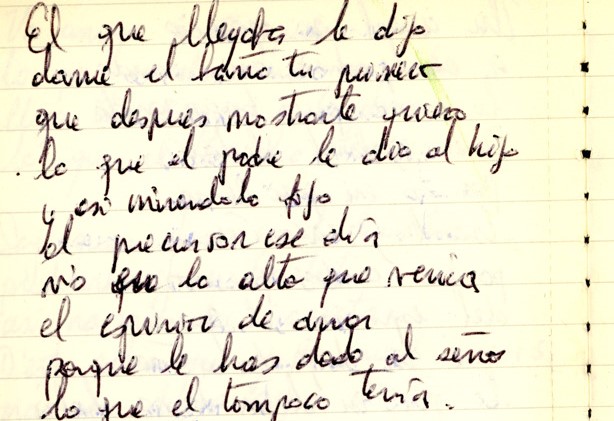 El que llegaba le dijo
dame el baño tu primero
que despues mostrarte quiero
lo que el padre le dio al hijo
y asi mirandolo fijo
el precursor ese dia
vio que lo alto que venia
el espiritu de amor
porque le has dado al señor
lo que el tampoco tenia.